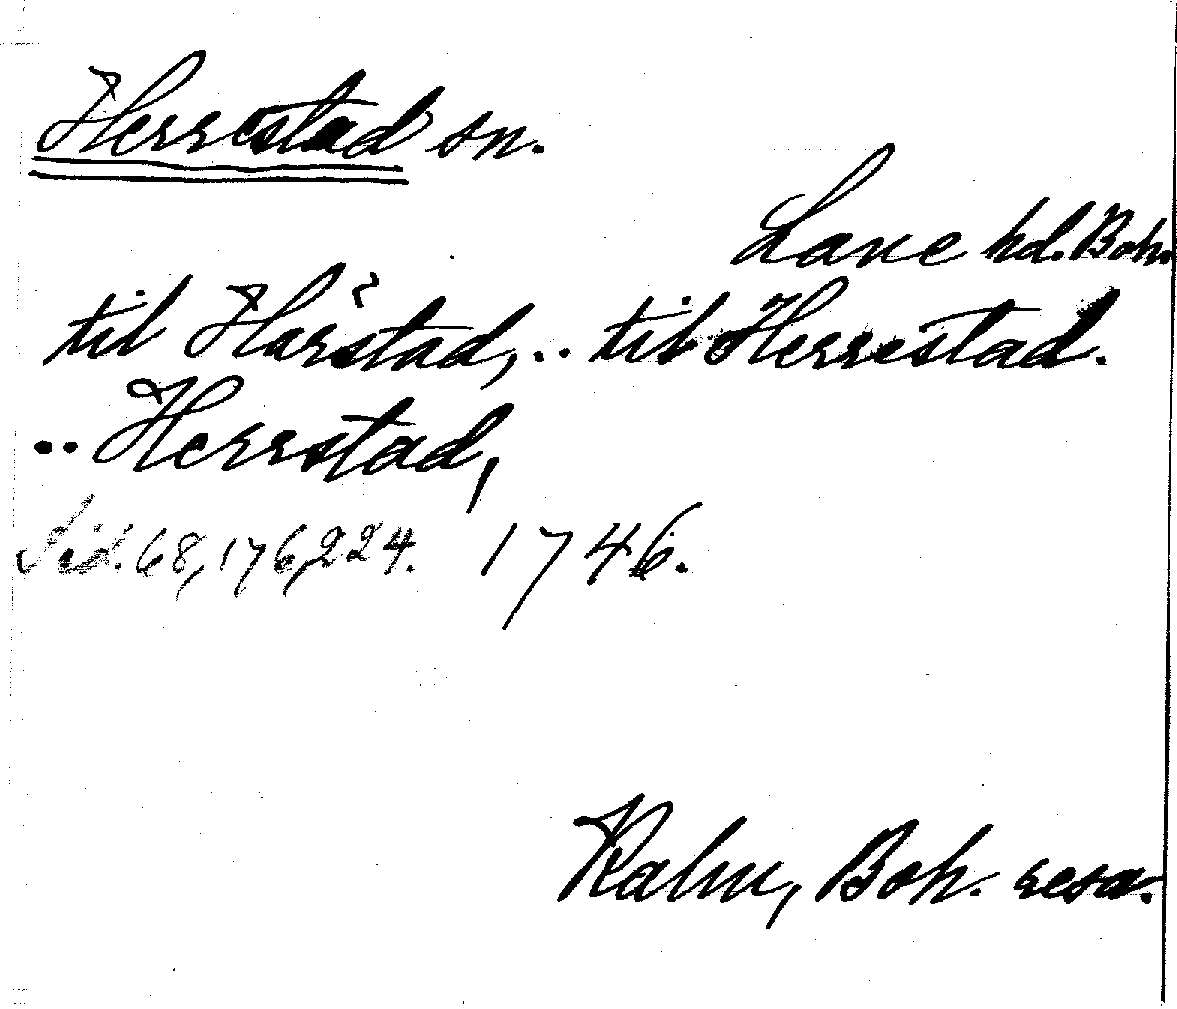 Herrestad sn.
Lane hd. Boh.
til Härstad, .. til Herrestad.
.. Herrstad,
Sid. 68, 176, 224. 1746.
Kalm, Boh. resa.